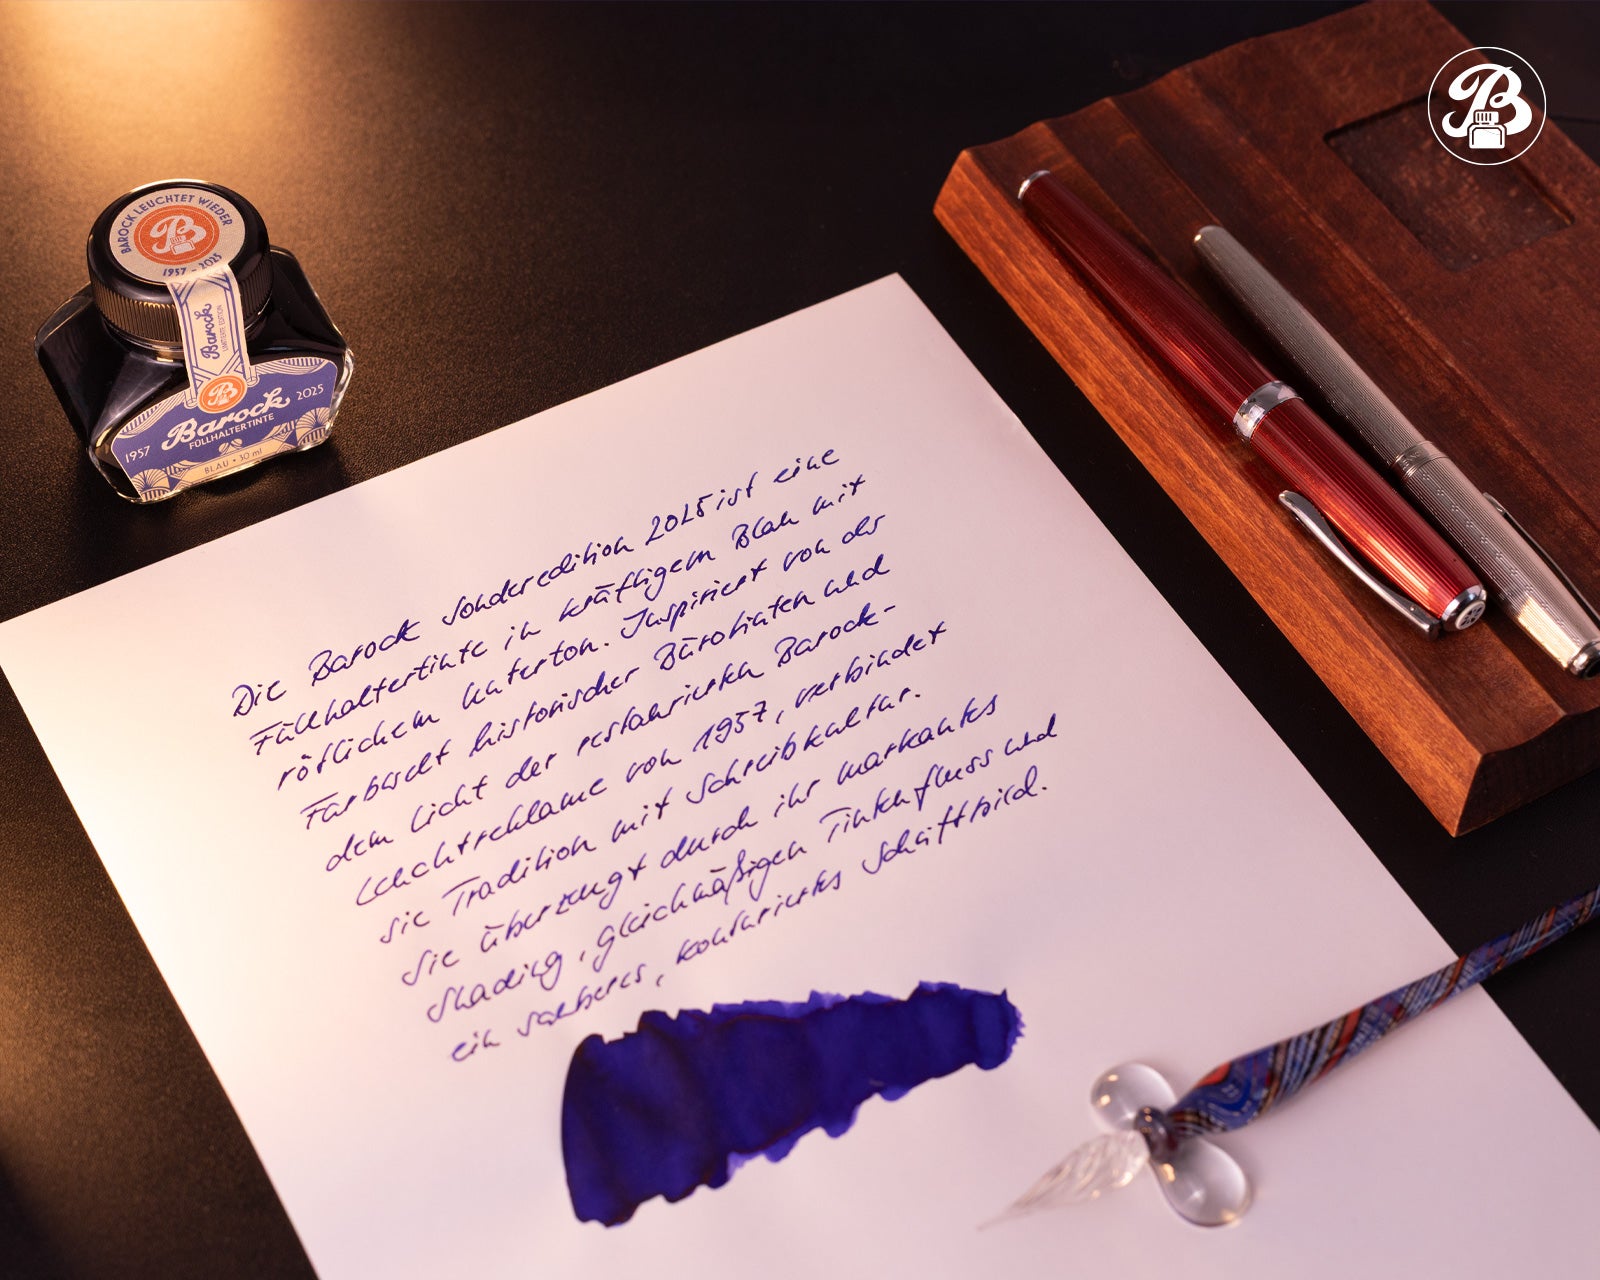 BAROCK LEUCHTET WIEDER
B
1957 - 2025
Barock
LIMITIERTE EDITION
B
1957 Barock 2025
FÜLLHALTERTINTE
BLAU • 30 ml
B
Die Barock Sonderedition 2025 ist eine
Füllhaltertinte in kräftigem Blau mit
rötlichem Unterton. Inspiriert von der
Farbwelt historischer Bürotinten und
dem Licht der restaurierten Barock-
Leuchtreklame von 1957, verbindet
sie Tradition mit Schreibkultur.
Sie überzeugt durch ihr markantes
Shading, gleichmäßigen Tintenfluss und
ein sauberes, konturiertes Schriftbild.